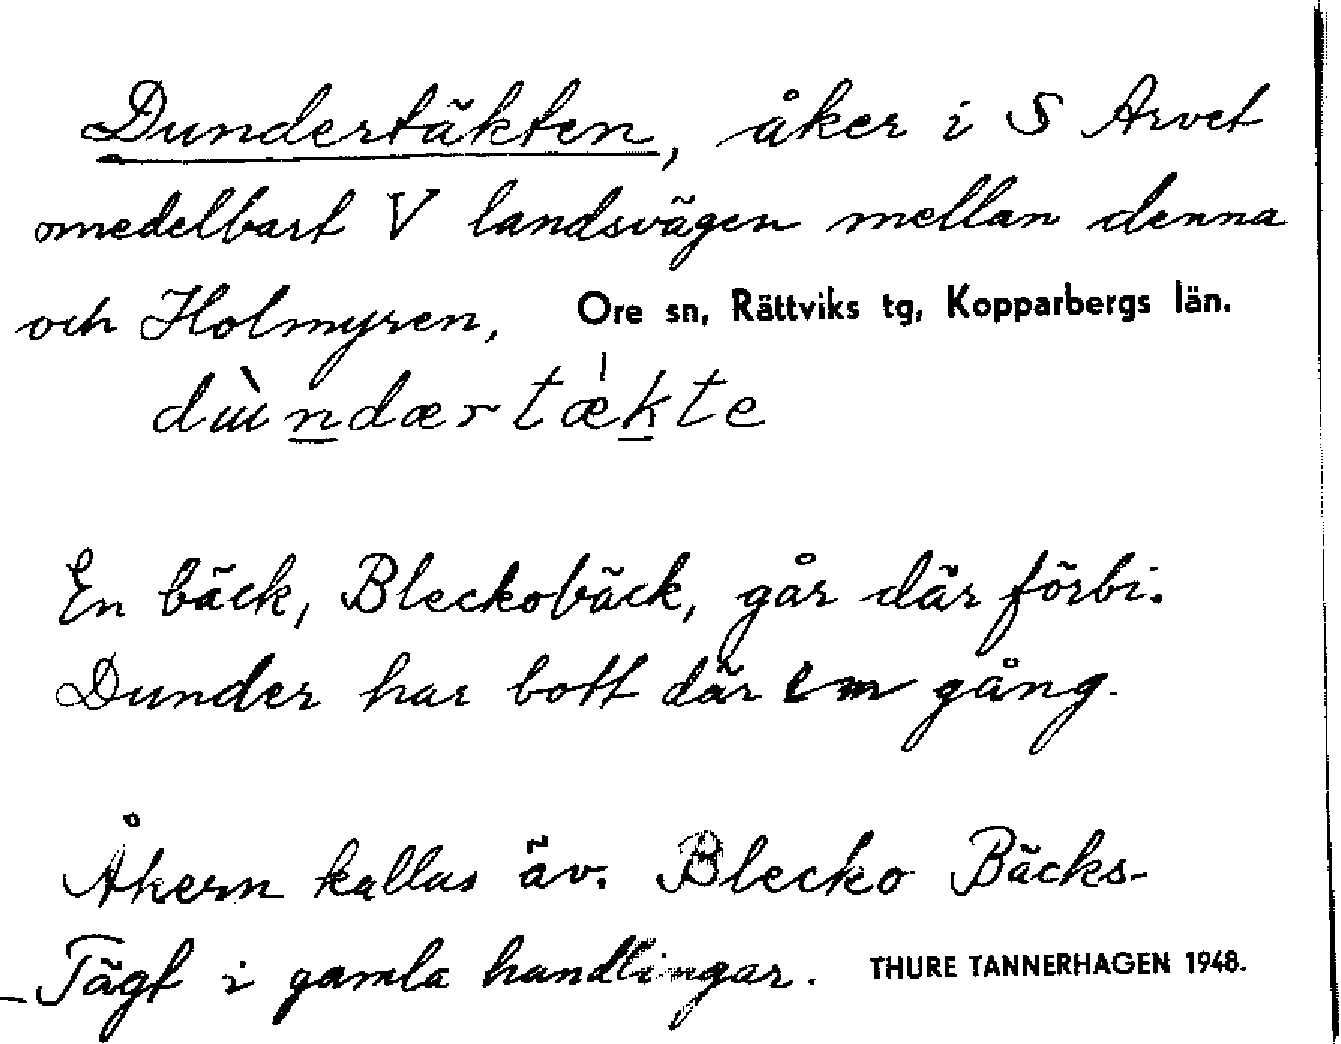 Dundertäkten, åker i S Arvet
omedelbart V landsvägen mellan denna
och Holmyren, Ore sn, Rättviks tg, Kopparbergs län.
dɯ̀ndærtækte
En bäck, Bleckobäck, går där förbi.
Dunder har bott där en gång.
Åkern kallas äv. Blecko Bäcks-
Tägt i gamla handlingar. THURE TANNERHAGEN 1948.